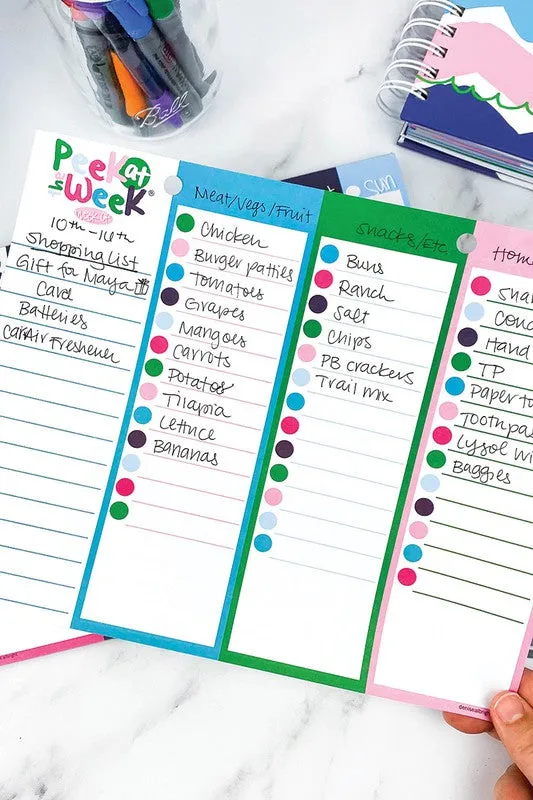 Ball
sun
Peek at
the Week®
Weeklist
10th-16th
Shopping List
Gift for Maya
Card
Batteries
Car Air Freshener
Meat/Vegs/Fruit
Chicken
Burger patties
Tomatoes
Grapes
Mangoes
Carrots
Potatoes
Tilapia
Lettuce
Bananas
Snacks/Etc.
Buns
Ranch
Salt
Chips
PB crackers
Trail mix
Hom
Sha
Cond
Hand
TP
Paper to
Toothpas
Lysol wi
Baggies